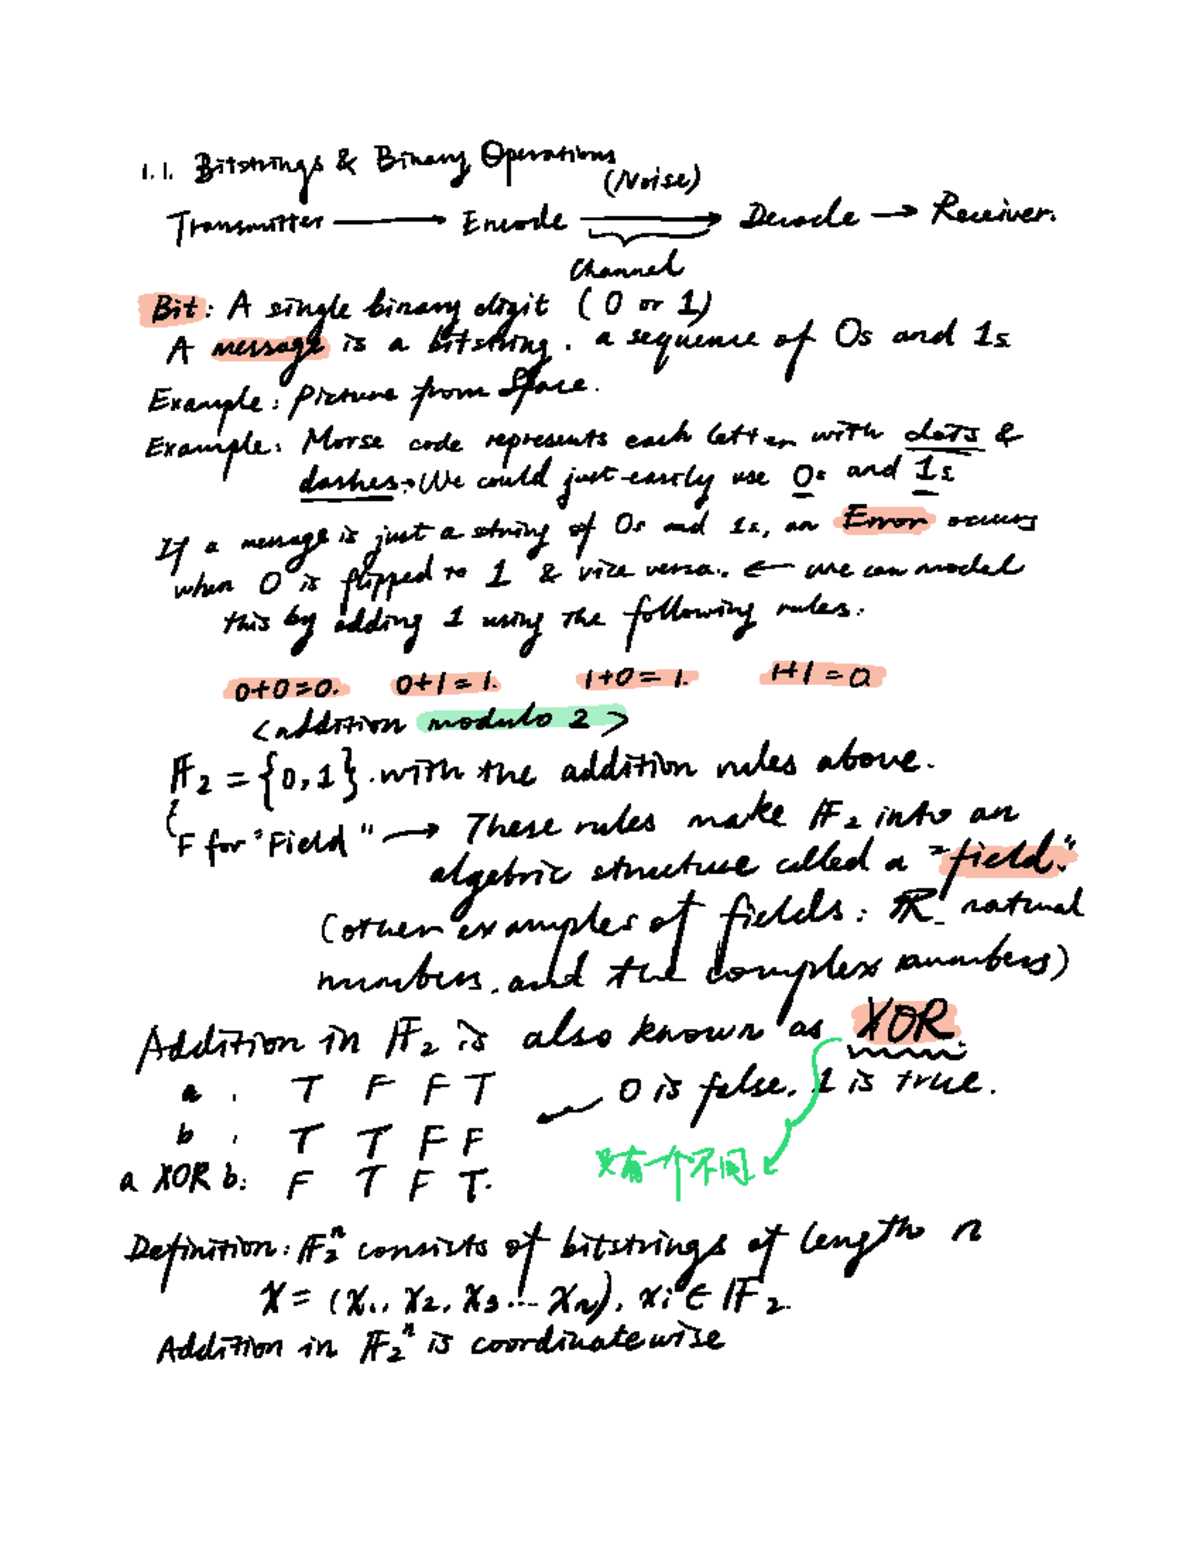 1.1. Bitstrings & Binary Operations
(Noise)
Transmitter → Encode → Decode → Receiver.
Channel
Bit: A single binary digit (0 or 1)
A message is a bitstring. a sequence of 0s and 1s
Example: Picture from Space.
Example: Morse code represents each letter with dots &
dashes. We could just easily use 0s and 1s
If a message is just a string of 0s and 1s, an Error occurs
when 0 is flipped to 1 & vice versa. ← we can model
this by adding 1 using the following rules:
0+0=0. 0+1=1. 1+0=1. 1+1=0
<addition modulo 2>
𝔽₂ = {0,1}. with the addition rules above.
F for "Field" → These rules make 𝔽₂ into an
algebric structure called a "field."
(other examples of fields: ℝ natural
numbers. and the complex numbers)
Addition in 𝔽₂ is also known as XOR.
a : T F F T 0 is false. 1 is true.
b : T T F F
只有一个不同
a XOR b: F T F T.
Definition: 𝔽₂ⁿ consists of bitstrings of length n
X = (x₁, x₂, x₃ ... xₙ), xᵢ ∈ 𝔽₂.
Addition in 𝔽₂ⁿ is coordinatewise